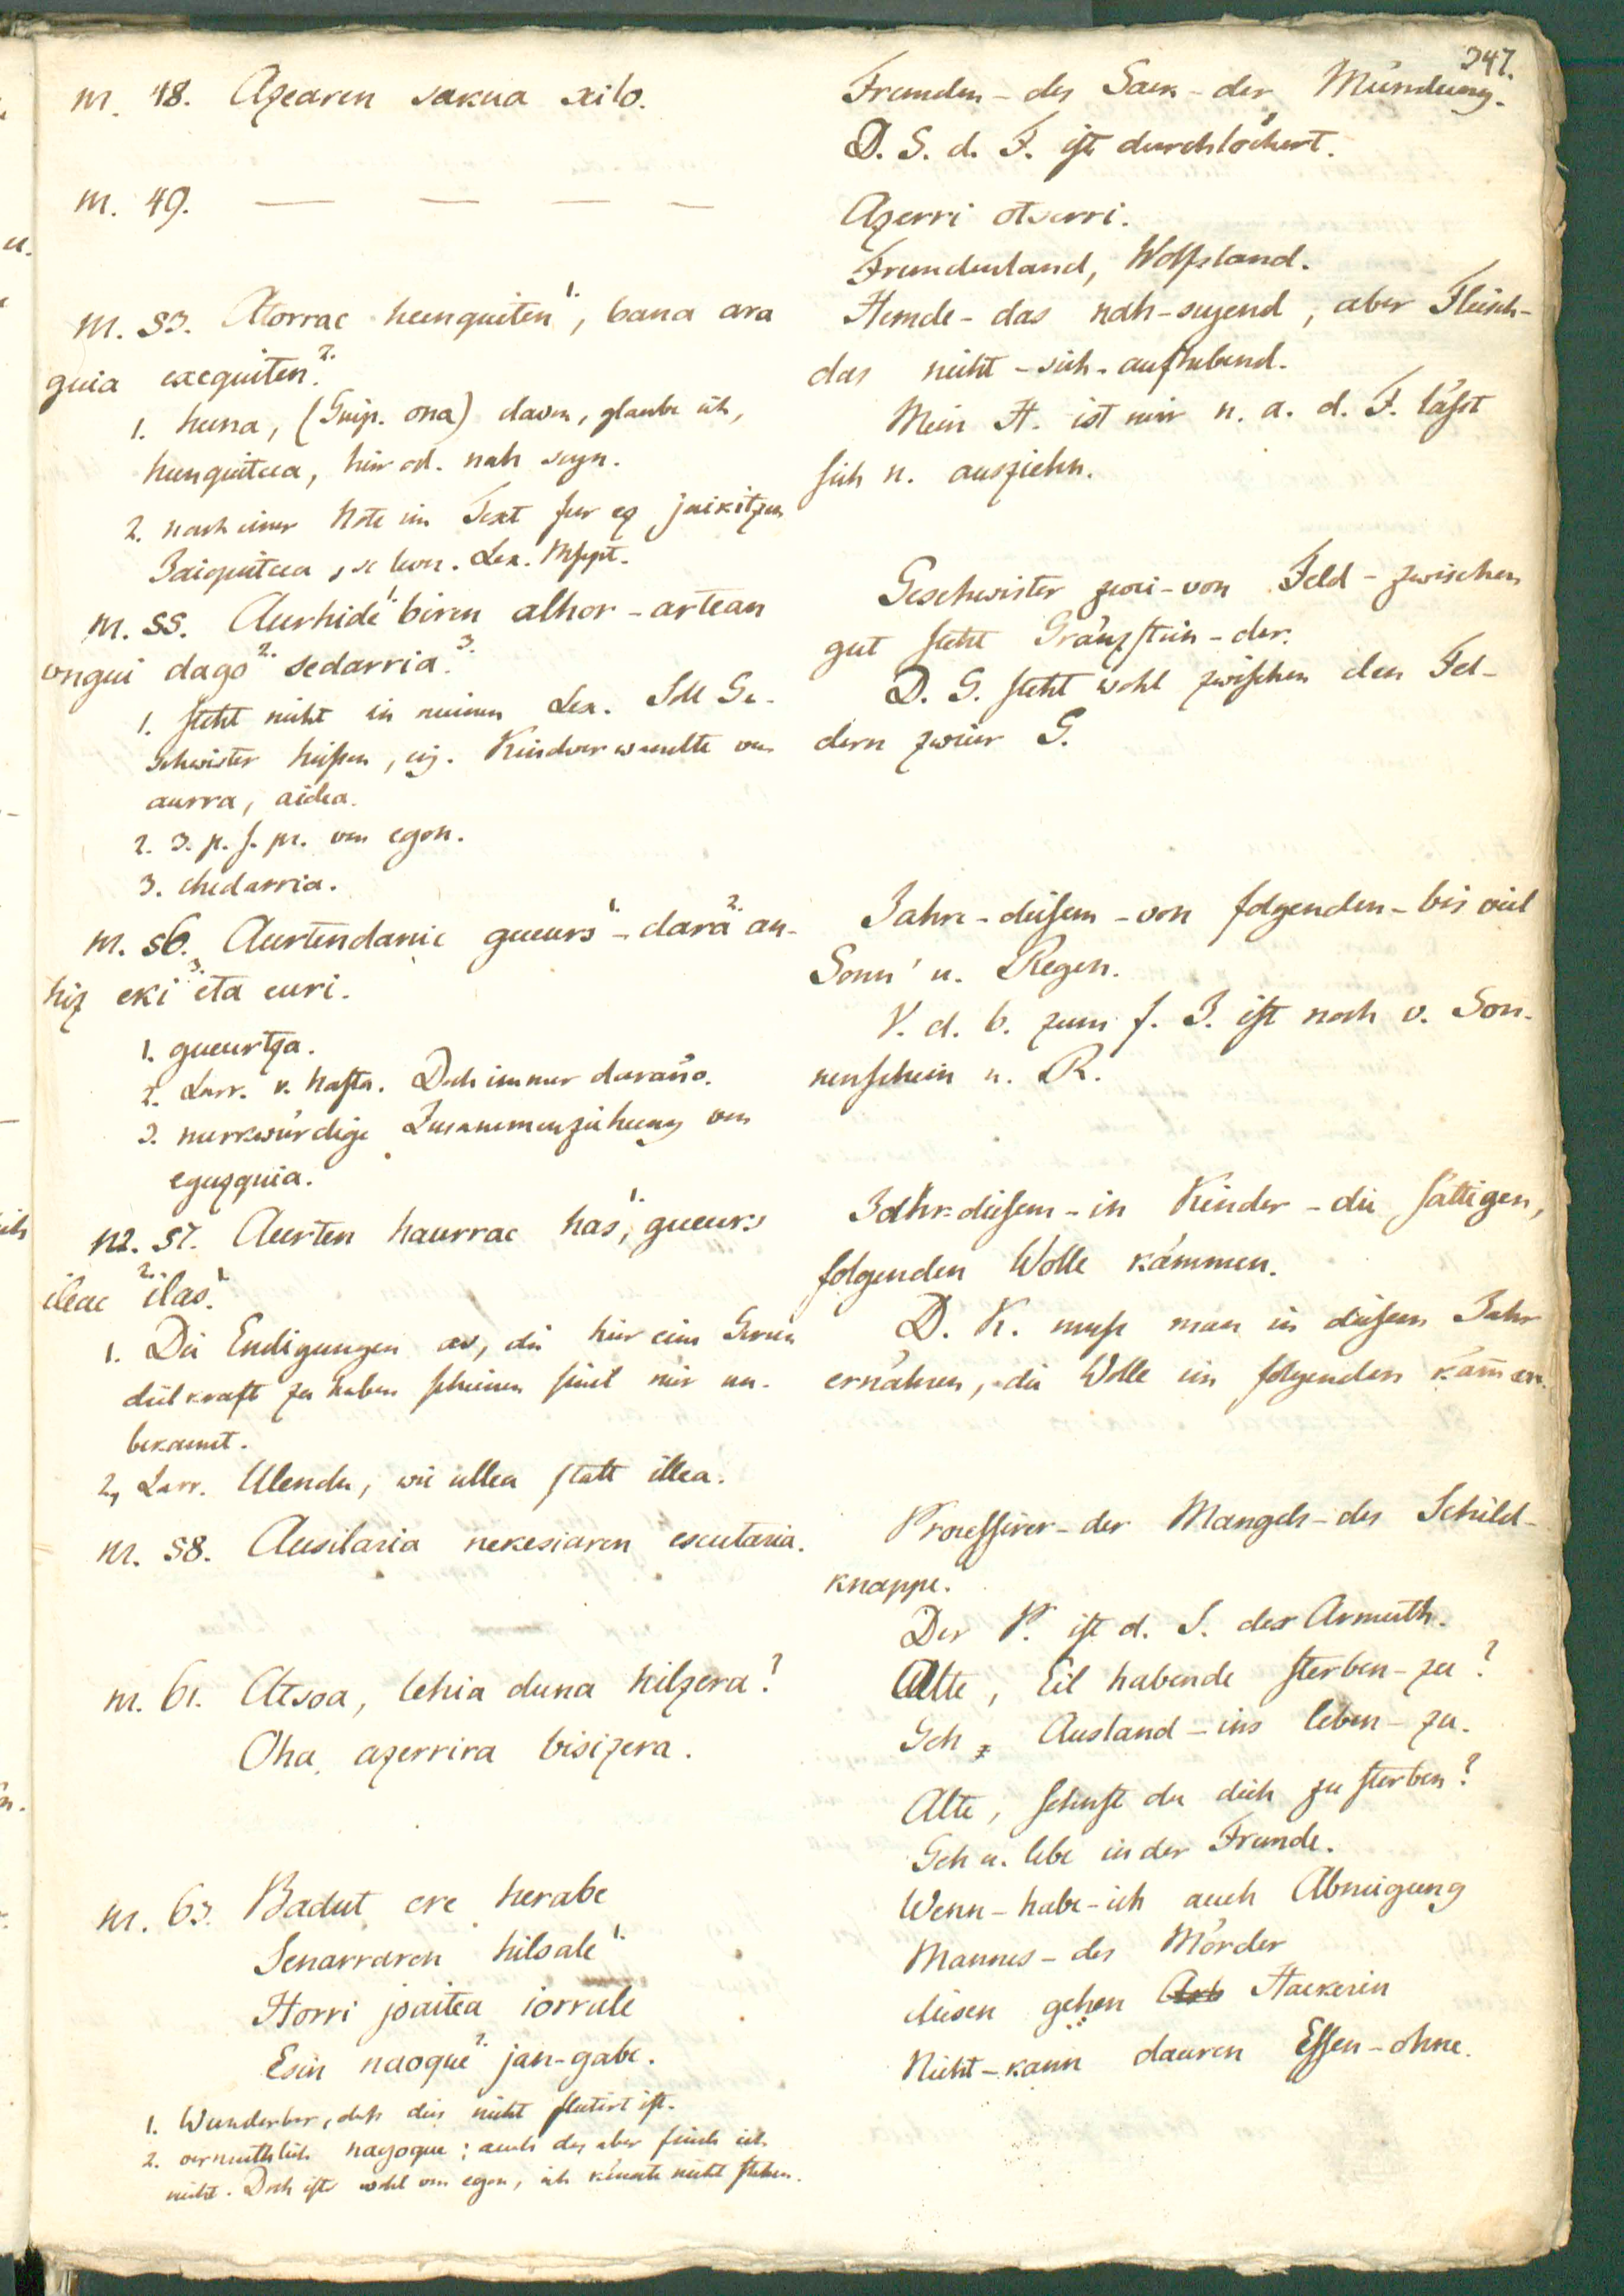 347.
m. 48. Azearen sakua xilo.
m. 49. — — — —
m. 53. Atorrac hunquiten 1., bana ara
guia exequiten 2.
1. huna, (Guip. ona) davon, glaube ich,
hunquitcea, hin od. nah seyn.
2. nach einer Note im Text fur ez jaikitzen
Jaiquitcea, se lever. Lex. Mspt.
m. 55. Aurhide 1. biren alhor - artean
ongui dago 2. sedarria 3.
1. steht nicht in meinem Lex. Soll Ge-
schwister heißen, eig. Kindverwandte von
aurra, aidea.
2. 3. p. s. pr. von egon.
3. chedarria.
m. 56. Aurtendanic gueurs 1. - dara 2. an-
hiz eki 3. eta euri.
1. gueurtza.
2. Larr. v. hasta. Doch immer daraño.
3. merkwürdige Zusammenziehung von
eguzquia.
m. 57. Aurten haurrac has 1., gueurs
ileac 2. ilas 1.
1. Die Endigungen as, die hier eine Gerun
divkraft zu haben scheinen sind mir un-
bekannt.
2, Larr. Ulendu, wie ullea statt illea.
m. 58. Ausilaria nekesiaren escutaria.
m. 61. Atsoa, lehia duna hilzera?
Oha azerrira bisizera.
m. 63. Badut ere herabe
Senarraren hilsale 1.
Horri joaitea iorrale
Esin naoque 2. jan-gabe.
1. Wunderbar, daß dies nicht flectirt ist.
2. vermuthlich nagoque; auch das aber finde ich
nicht. Doch ists wohl von egon, ich könnte nicht stehen.
Fremden - des Sack - der Mündung.
D. S. d. F. ist durchlöchert.
Azerri otserri.
Fremdenland, Wolfsland.
Hemde - das nah - seyend, aber Fleisch-
das nicht - sich - aufhebend.
Mein H. ist mir n. a. d. F. läßt
sich n. ausziehn.
Geschwister zwei - von Feld - zwischen
gut steht Gränzstein - der.
D. G. steht wohl zwischen den Fel-
dern zweier G.
Jahre - diesem - von folgenden - bis viel
Sonn' u. Regen.
V. d. b. zum f. J. ist noch v. Son-
nenschein u. R.
Jahr diesem - in Kinder - die sättigen,
folgenden Wolle kämmen.
D. K. muß man in diesem Jahr
ernähren, die Wolle im folgenden käm̄en.
Processirer - der Mangels - des Schild-
knappe.
Der P. ist d. S. der Armuth.
Alte, Eil habende sterben - zu?
Geh, Ausland - ins leben - zu.
Alte, sehnst du dich zu sterben?
Geh u. lebe in der Fremde.
Wenn - habe - ich auch Abneigung
Mannes - des Mörder
diesen gehen Hackerin
Nicht - kann dauren Essen - ohne.